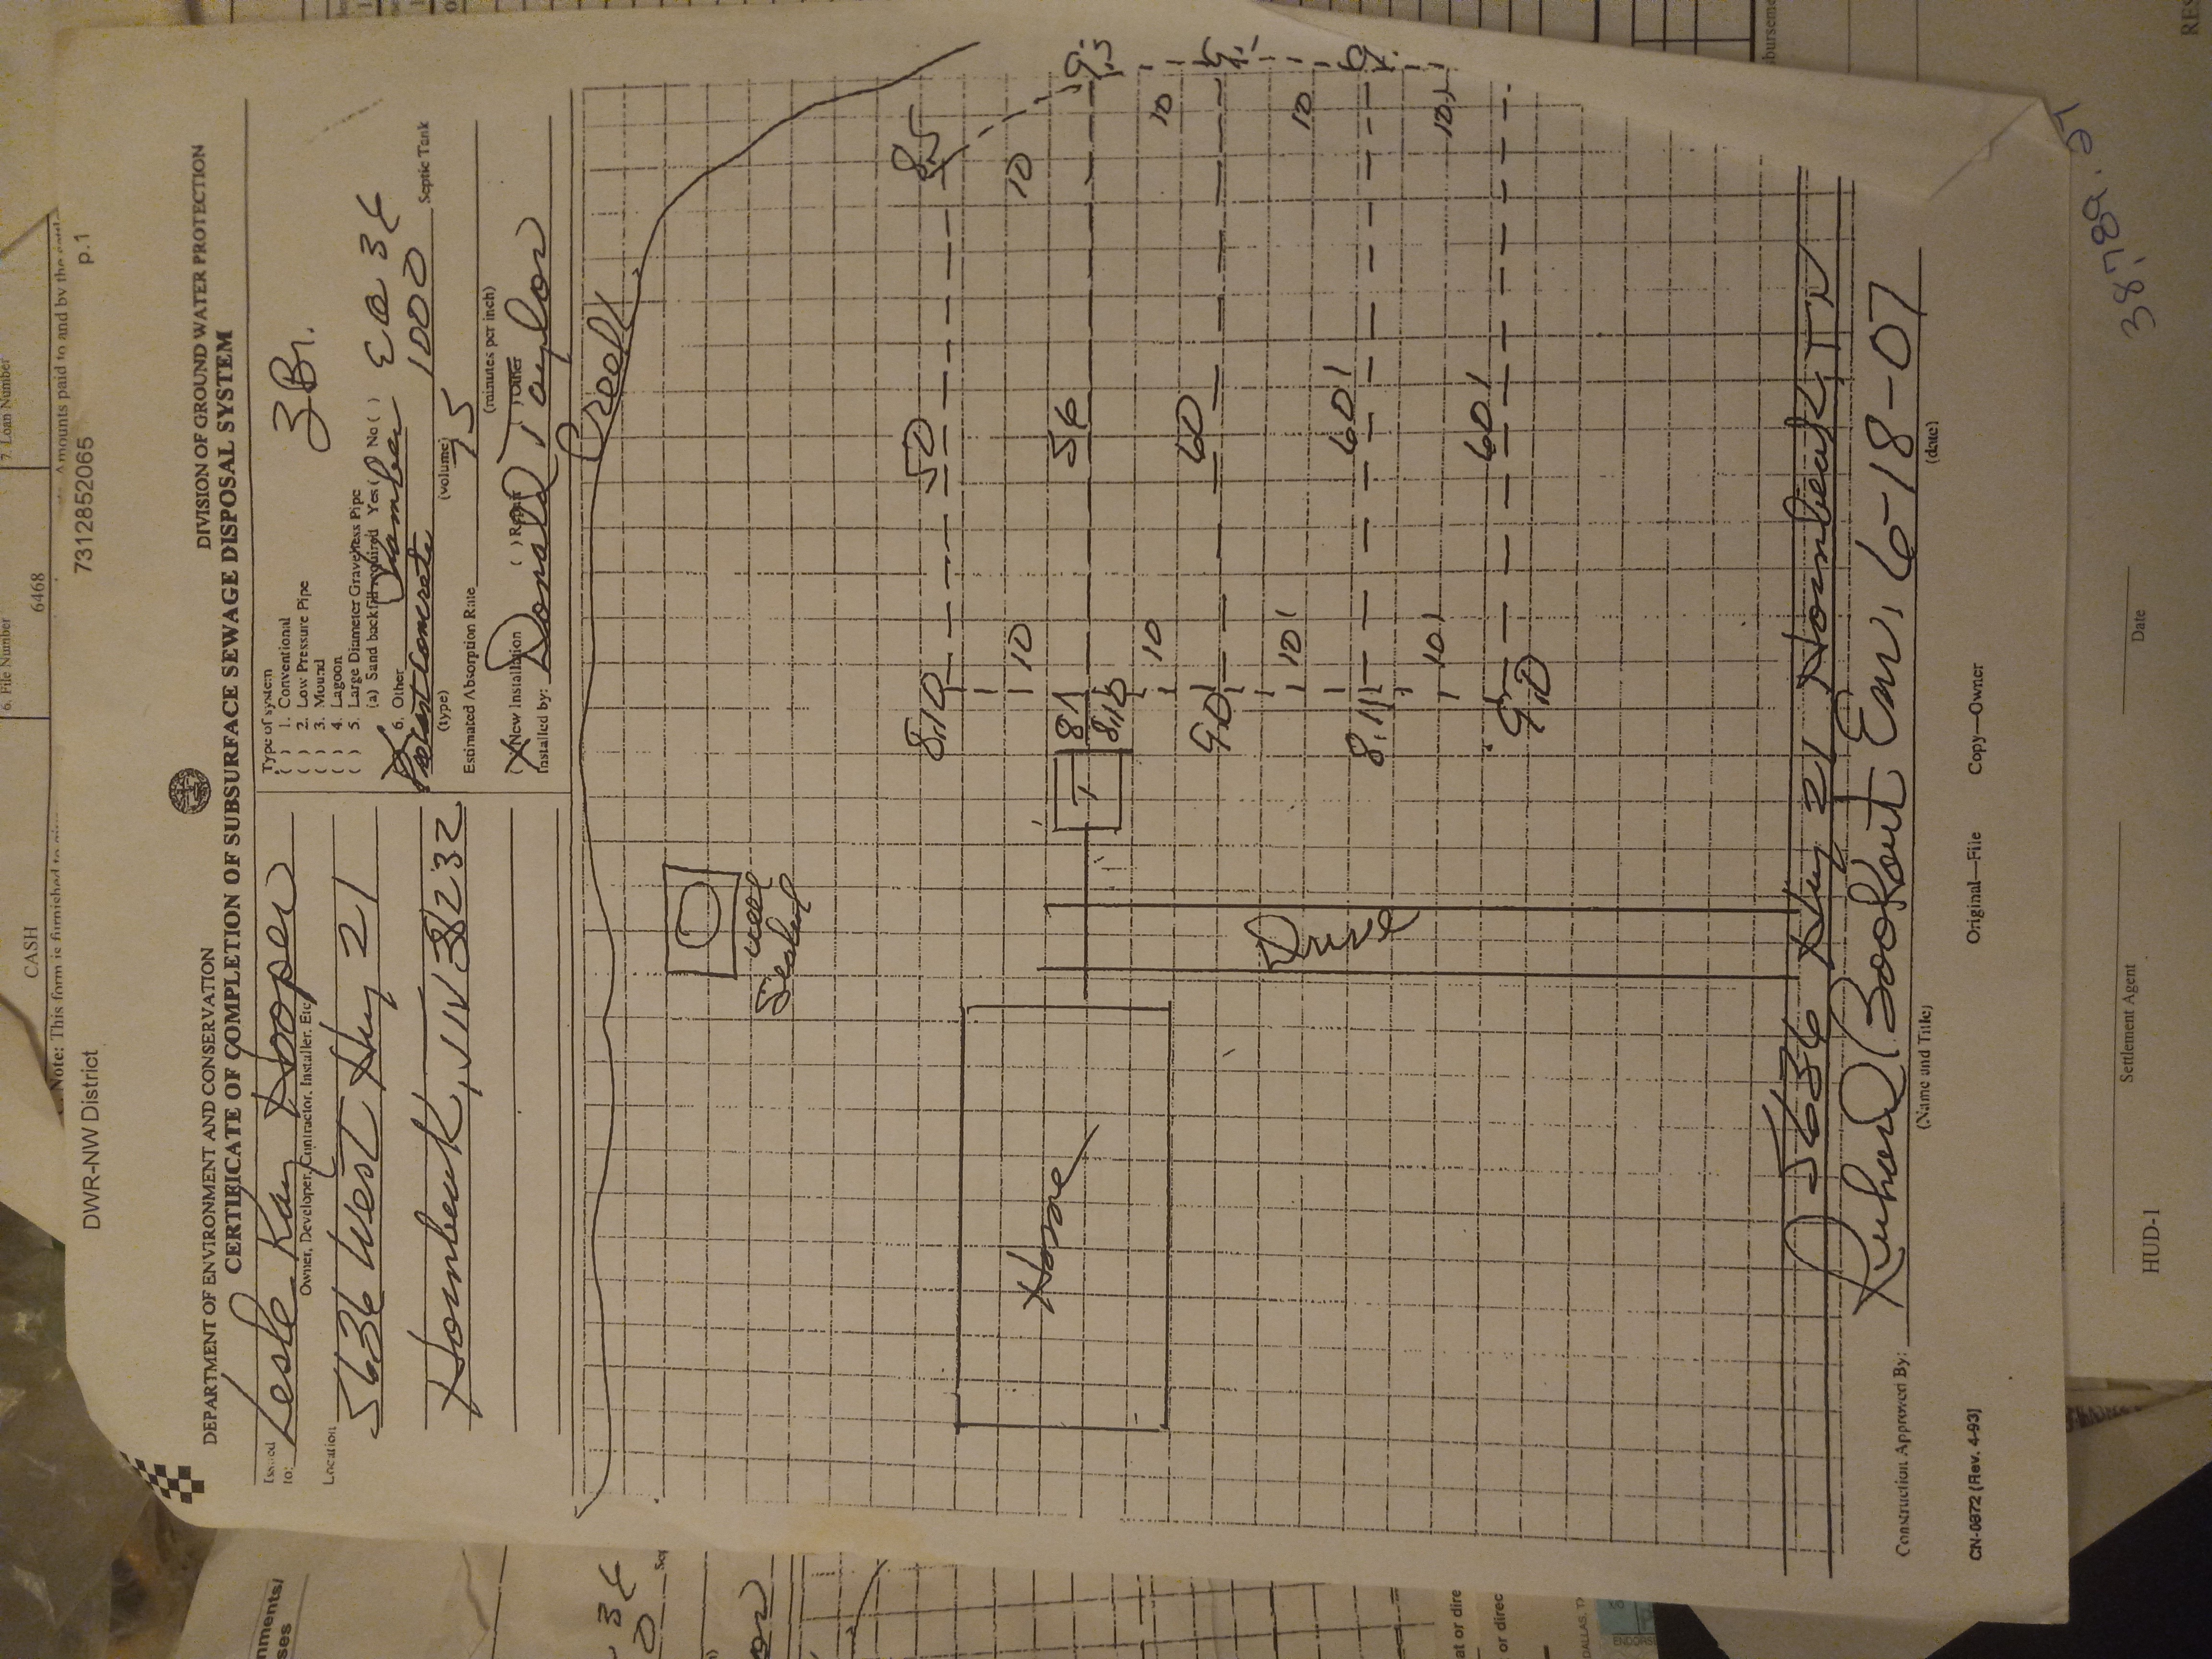 6. File Number
7. Loan Number
CASH
6468
Note: This form is furnished to
Amounts paid to and by the
DWR-NW District
7312852065
p.1
DEPARTMENT OF ENVIRONMENT AND CONSERVATION
DIVISION OF GROUND WATER PROTECTION
CERTIFICATE OF COMPLETION OF SUBSURFACE SEWAGE DISPOSAL SYSTEM
Issued to: Leslie Kay Hooper
Owner, Developer, Contractor, Installer, Etc.
Location 5636 West Hwy 21
Hornbeak, TN 38232
Type of system
( ) 1. Conventional
( ) 2. Low Pressure Pipe
( ) 3. Mound
( ) 4. Lagoon
( ) 5. Large Diameter Gravelless Pipe
(a) Sand backfill required Yes ( ) No ( )
6. Other Chamber EQ 36
3 Br.
1000 Septic Tank
(type)
(volume)
Estimated Absorption Rate 75
(minutes per inch)
(X) New Installation ( ) Repair ( ) Other
Installed by: Donald Taylor
Creek
Well
Sealed
8.10
50
8.5
10
10
T
8.1
8.10
56
9.5
10
10
9.0
60
9.1
10'
10
8.11
60'
9.
10'
10'
9.0
60'
Home
Drive
5636 Hwy 21 Hornbeak, TN
Construction Approved By: Richard Bookout Env. 6-18-07
(Name and Title)
(date)
Original—File
Copy—Owner
CN-0872 (Rev. 4-93)
Settlement Agent
Date
HUD-1